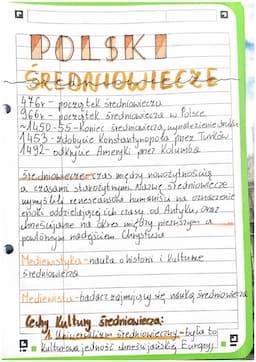 POLSKI
ŚREDNIOWIECZE
476r - początek średniowiecza
966r - początek średniowiecza w Polsce
~1450-55 - koniec średniowiecza, wynalezienie druku
1453 - zdobycie Konstantynopola przez Turków
1492 - odkrycie Ameryki przez Kolumba
Średniowiecze - czas między nowożytnością
a czasami starożytnymi. Nazwę średniowiecze
wymyślili renesansowi humaniści na oznaczenie
epoki oddzielającej ich czasy od Antyku, oraz
chrześcijanie na okres między pierwszym a
powtórnym nadejściem Chrystusa
Mediewistyka - nauka o historii i kulturze
średniowiecza
Mediewista - badacz zajmujący się nauką średniowiecza
Cechy kultury średniowiecza:
1 Uniwersalizm średniowieczny - była to
kulturowa jedność chrześcijańskiej Europy,